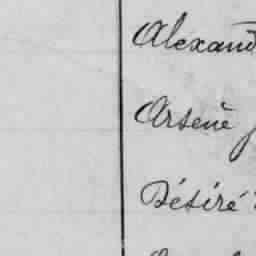 Alexand
Arsène
Désiré